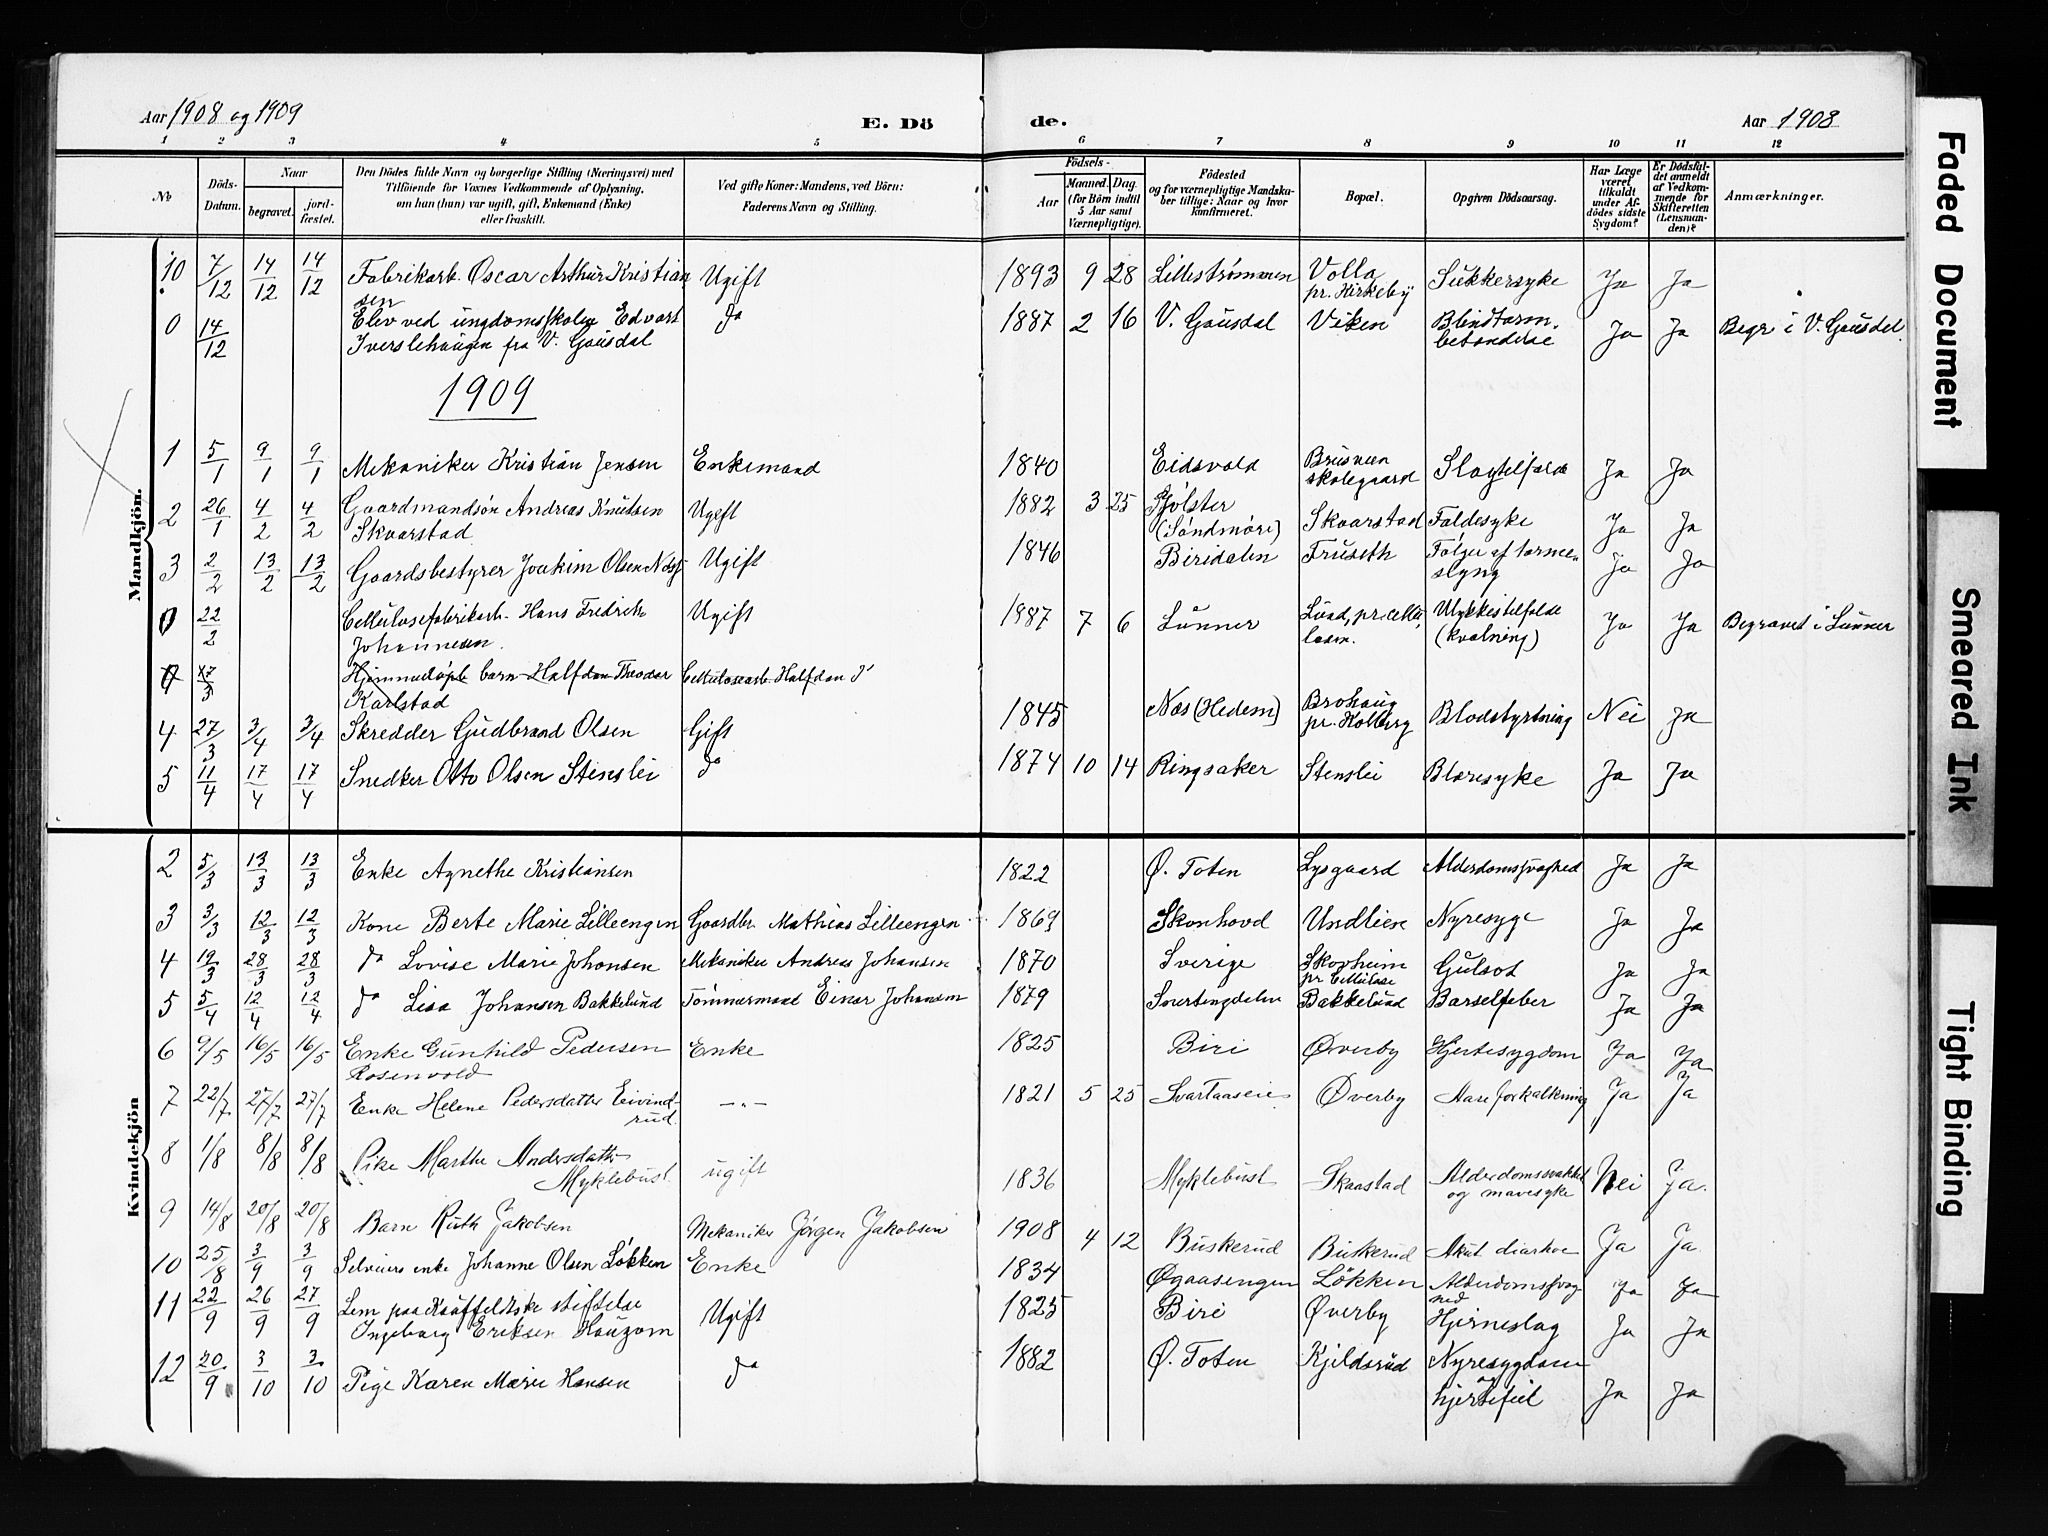 Aar 1908 og 1909
E. Dö
de.
Aar 1908
1 2 3 4 5 6 7 8 9 10 11 12
No
Döds-Datum.
Naar
begravet.
jord-fæstet.
Den Dödes fulde Navn og borgerlige Stilling (Næringsvei) med
Tilföiende for Voxnes Vedkommende af Oplysning,
om han (hun) var ugift, gift, Enkemand (Enke)
eller fraskilt.
Ved gifte Koner: Mandens, ved Börn:
Faderens Navn og Stilling.
Födsels-
Aar
Maaned. Dag.
(for Börn indtil
5 Aar samt
Værnepligtige).
Födested
og for værnepligtige Mandska-
ber tillige: Naar og hvor
konfirmeret.
Bopæl.
Opgiven Dödsaarsag.
Har Læge
været
tilkaldt
under Af-
dödes sidste
Sygdom?
Er Dödsfal-
det anmeldt
af Vedkom-
mende for
Skifteretten
(Lensman-
den)?
Anmærkninger.
Mandkjön.
10 7/12 14/12 14/12 Fabrikarb. Oscar Arthur Kristian Ugift 1893 9 28 Lillestrømmen Volla Sukkersyke Ja Ja
sen pr. Kirkeby
0 14/12 Elev ved ungdomsskolen Edvart do 1887 2 16 V. Gausdal Viken Blindtarm. Ja Ja Begr i V. Gausdal.
Iverslehaugen fra V. Gausdal betændelse
1909
1 5/1 9/1 9/1 Mekaniker Kristian Jensen Enkemand 1840 Eidsvold Brusveen Slagtelfælde Ja Ja
skolegaard
2 26/1 4/2 4/2 Gaardmandsøn Andreas Knutsen Ugift 1882 3 25 Jølster Skvarstad Faldesyke Ja Ja
Skvarstad (Søndmøre)
3 2/2 13/2 13/2 Gaardsbestyrer Joakim Olsen Ugift 1846 Biridalen Fruseth Følger af tarme- Ja Ja
slyng
0 22/2 Cellulosefabrikarb. Hans Fredrik Ugift 1887 7 6 Lunner Lund, pr. cellu Ulykkestelfælde Ja Ja Begravet i Lunner
Johannesen. losen. (kvælning)
0 17/3 Hjemmedøpt barn Halfdan Theodor Cellulosearb. Halfdan
Karlstad
4 27/3 3/4 3/4 Skredder Gudbrand Olsen Gift 1845 Næs (Hedem) Brohaug Blodstyrtning Nei Ja
pr. Kolberg
5 11/4 17/4 17/4 Snedker Otto Olsen Stenslei do 1874 10 14 Ringsaker Stenslei Blæresyke Ja Ja
Kvindekjön
2 5/3 13/3 13/3 Enke Agnethe Kristiansen 1822 Ø. Toten Lysgaard Alderdomssvaghed Ja Ja
3 3/3 12/3 12/3 Kone Berte Marie Lilleengen Gaardbr Mathias Lilleengen 1869 Skonhovd Undlien Nyresyge Ja Ja
4 19/3 28/3 28/3 do Lovise Marie Johansen Mekaniker Andreas Johansen 1870 Sverige Skogheim Gulsot Ja Ja
pr Cellulose
5 5/4 12/4 12/4 do Lisa Johansen Bakkelund Tømmermand Einar Johansen 1879 Snertingdalen Bakkelund Barselfeber Ja Ja
6 9/5 16/5 16/5 Enke Gunhild Pedersen Enke 1825 Biri Øverby Hjertesygdom Ja Ja
Rosenvold
7 22/7 27/7 27/7 Enke Helene Pedersdatter Eivind- — „ — 1821 5 25 Svartaaseie Øverby Aareforkalkning Ja Ja
rud.
8 1/8 8/8 8/8 Pike Marthe Andersdatter ugift 1836 Myklebust Skaastad Alderdomssvakhet Nei Ja.
Myklebust og mavesyke
9 14/8 20/8 20/8 Barn Ruth Jakobsen Mekaniker Jørgen Jakobsen 1908 4 12 Buskerud Buskerud Akut diarhoe Ja Ja.
10 25/8 3/9 3/9 Selveiers enke Johanne Olsen Løkken Enke 1834 Øgaasengen Løkken Alderdomssvag Ja Ja
hed
11 22/9 26/9 27/9 Lem paa Kauffeldtske stiftelse Ugift 1825 Biri Øverby Hjerneslag Ja Ja
Ingeborg Eriksen Haugom
12 20/9 3/10 3/10 Pige Karen Marie Hansen do 1882 Ø. Toten Kjildsrud Nyresygdom Ja Ja
og
hjertefeil
Faded Document
Smeared Ink
Tight Binding